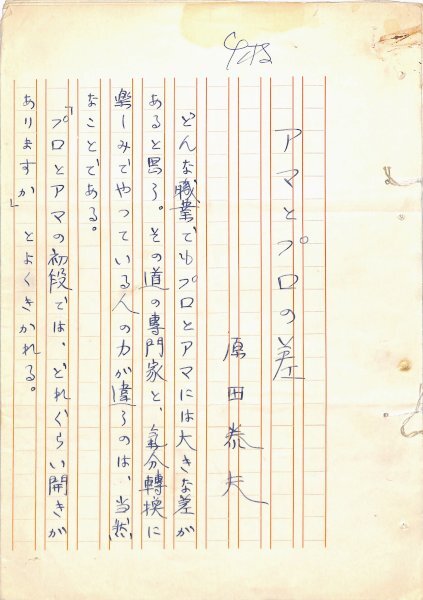 アマとプロの差
原田泰夫
どんな職業でもプロとアマには大きな差が
あると思う。その道の専門家と、氣分轉換に
楽しみでやっている人の力が違うのは、当然
なことである。
「プロとアマの初段では、どれぐらい開きが
ありますか」とよくきかれる。